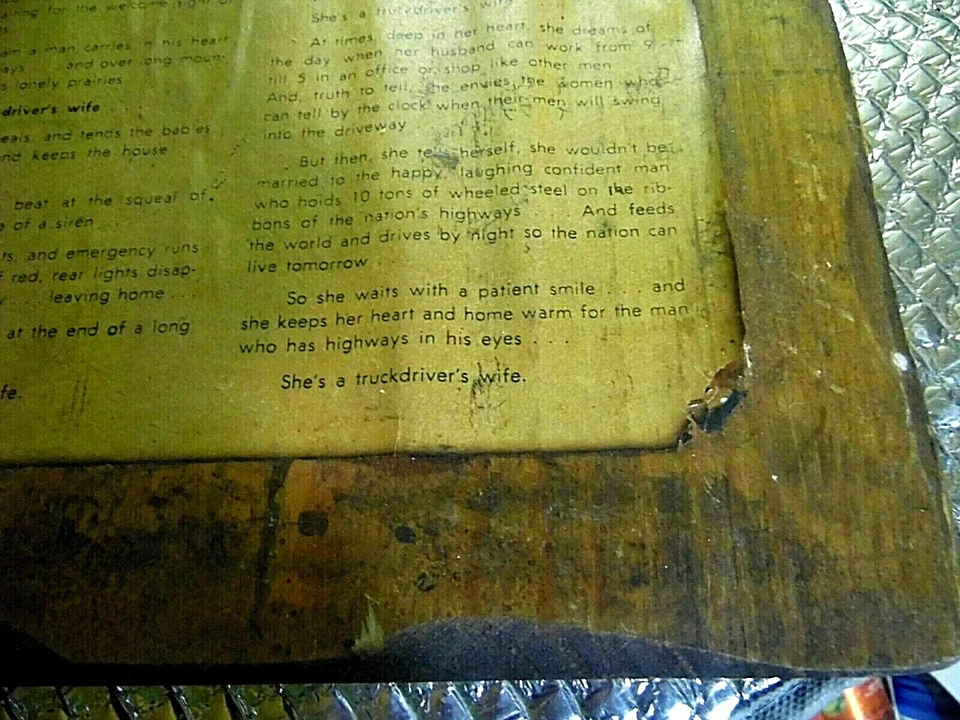 for the welcome
man carries in his heart
and over long moun-
lonely prairies
driver's wife
and tends the babies
and keeps the house
beat at the squeal of
of a siren
and emergency runs
red, rear lights disap-
. . . leaving home . . .
at the end of a long
She's a truckdriver's wife
At times, deep in her heart, she dreams of
the day when her husband can work from 9
till 5 in an office or shop like other men
And, truth to tell, she envies the women who
can tell by the clock when their men will swing
into the driveway . . .
But then, she tells herself, she wouldn't be
married to the happy, laughing confident man
who holds 10 tons of wheeled steel on the rib-
bons of the nation's highways . . . And feeds
the world and drives by night so the nation can
live tomorrow
So she waits with a patient smile . . . and
she keeps her heart and home warm for the man
who has highways in his eyes . . .
She's a truckdriver's wife.